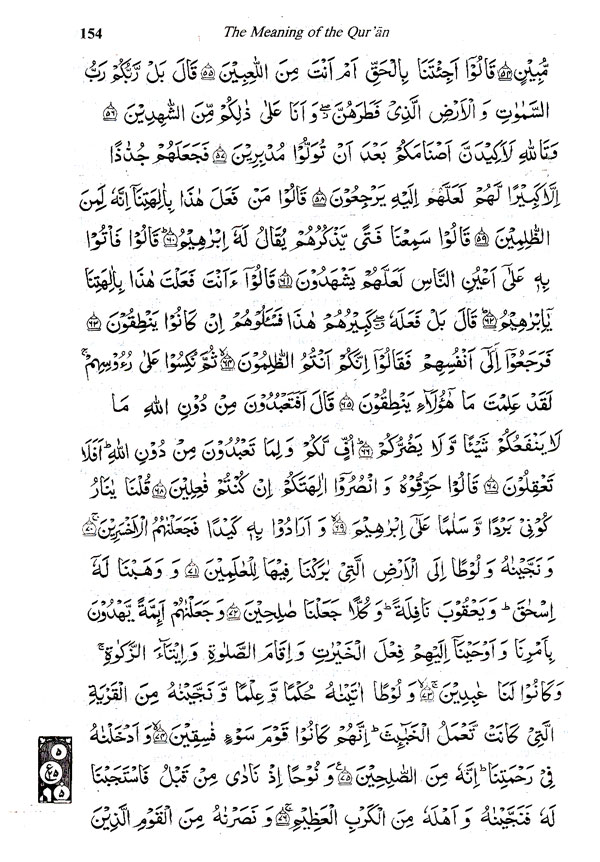 154 The Meaning of the Qur'ān
مُّبِيْنٍ ﴿۵۴﴾ قَالُوْٓا اَجِئْتَنَا بِالْحَقِّ اَمْ اَنْتَ مِنَ اللّٰعِبِيْنَ ﴿۵۵﴾ قَالَ بَلْ رَّبُّكُمْ رَبُّ
السَّمٰوٰتِ وَ الْاَرْضِ الَّذِيْ فَطَرَهُنَّ ۖ وَ اَنَا عَلٰى ذٰلِكُمْ مِّنَ الشّٰهِدِيْنَ ﴿۵۶﴾
وَتَاللّٰهِ لَاَكِيْدَنَّ اَصْنَامَكُمْ بَعْدَ اَنْ تُوَلُّوْا مُدْبِرِيْنَ ﴿۵۷﴾ فَجَعَلَهُمْ جُذٰذًا
اِلَّا كَبِيْرًا لَّهُمْ لَعَلَّهُمْ اِلَيْهِ يَرْجِعُوْنَ ﴿۵۸﴾ قَالُوْا مَنْ فَعَلَ هٰذَا بِاٰلِهَتِنَآ اِنَّهٗ لَمِنَ
الظّٰلِمِيْنَ ﴿۵۹﴾ قَالُوْا سَمِعْنَا فَتًى يَّذْكُرُهُمْ يُقَالُ لَهٗٓ اِبْرٰهِيْمُ ﴿۶۰﴾ قَالُوْا فَاْتُوْا
بِهٖ عَلٰٓى اَعْيُنِ النَّاسِ لَعَلَّهُمْ يَشْهَدُوْنَ ﴿۶۱﴾ قَالُوْٓا ءَاَنْتَ فَعَلْتَ هٰذَا بِاٰلِهَتِنَا
يٰٓاِبْرٰهِيْمُ ﴿۶۲﴾ قَالَ بَلْ فَعَلَهٗ ۖ كَبِيْرُهُمْ هٰذَا فَسْـَٔلُوْهُمْ اِنْ كَانُوْا يَنْطِقُوْنَ ﴿۶۳﴾
فَرَجَعُوْٓا اِلٰٓى اَنْفُسِهِمْ فَقَالُوْٓا اِنَّكُمْ اَنْتُمُ الظّٰلِمُوْنَ ﴿۶۴﴾ ثُمَّ نُكِسُوْا عَلٰى رُءُوْسِهِمْ ۚ
لَقَدْ عَلِمْتَ مَا هٰٓؤُلَآءِ يَنْطِقُوْنَ ﴿۶۵﴾ قَالَ اَفَتَعْبُدُوْنَ مِنْ دُوْنِ اللّٰهِ مَا
لَا يَنْفَعُكُمْ شَيْـًٔا وَّ لَا يَضُرُّكُمْ ﴿۶۶﴾ اُفٍّ لَّكُمْ وَ لِمَا تَعْبُدُوْنَ مِنْ دُوْنِ اللّٰهِ ؕ اَفَلَا
تَعْقِلُوْنَ ﴿۶۷﴾ قَالُوْا حَرِّقُوْهُ وَ انْصُرُوْٓا اٰلِهَتَكُمْ اِنْ كُنْتُمْ فٰعِلِيْنَ ﴿۶۸﴾ قُلْنَا يٰنَارُ
كُوْنِيْ بَرْدًا وَّ سَلٰمًا عَلٰٓى اِبْرٰهِيْمَ ﴿۶۹﴾ وَ اَرَادُوْا بِهٖ كَيْدًا فَجَعَلْنٰهُمُ الْاَخْسَرِيْنَ ﴿۷۰﴾
وَ نَجَّيْنٰهُ وَ لُوْطًا اِلَى الْاَرْضِ الَّتِيْ بٰرَكْنَا فِيْهَا لِلْعٰلَمِيْنَ ﴿۷۱﴾ وَ وَهَبْنَا لَهٗٓ
اِسْحٰقَ ؕ وَ يَعْقُوْبَ نَافِلَةً ؕ وَ كُلًّا جَعَلْنَا صٰلِحِيْنَ ﴿۷۲﴾ وَ جَعَلْنٰهُمْ اَىِٕمَّةً يَّهْدُوْنَ
بِاَمْرِنَا وَ اَوْحَيْنَآ اِلَيْهِمْ فِعْلَ الْخَيْرٰتِ وَ اِقَامَ الصَّلٰوةِ وَ اِيْتَآءَ الزَّكٰوةِ ۚ
وَ كَانُوْا لَنَا عٰبِدِيْنَ ﴿۷۳﴾ وَ لُوْطًا اٰتَيْنٰهُ حُكْمًا وَّ عِلْمًا وَّ نَجَّيْنٰهُ مِنَ الْقَرْيَةِ
الَّتِيْ كَانَتْ تَّعْمَلُ الْخَبٰٓىِٕثَ ؕ اِنَّهُمْ كَانُوْا قَوْمَ سَوْءٍ فٰسِقِيْنَ ﴿۷۴﴾ وَ اَدْخَلْنٰهُ
فِيْ رَحْمَتِنَا ؕ اِنَّهٗ مِنَ الصّٰلِحِيْنَ ﴿۷۵﴾ وَ نُوْحًا اِذْ نَادٰى مِنْ قَبْلُ فَاسْتَجَبْنَا
لَهٗ فَنَجَّيْنٰهُ وَ اَهْلَهٗ مِنَ الْكَرْبِ الْعَظِيْمِ ﴿۷۶﴾ وَ نَصَرْنٰهُ مِنَ الْقَوْمِ الَّذِيْنَ